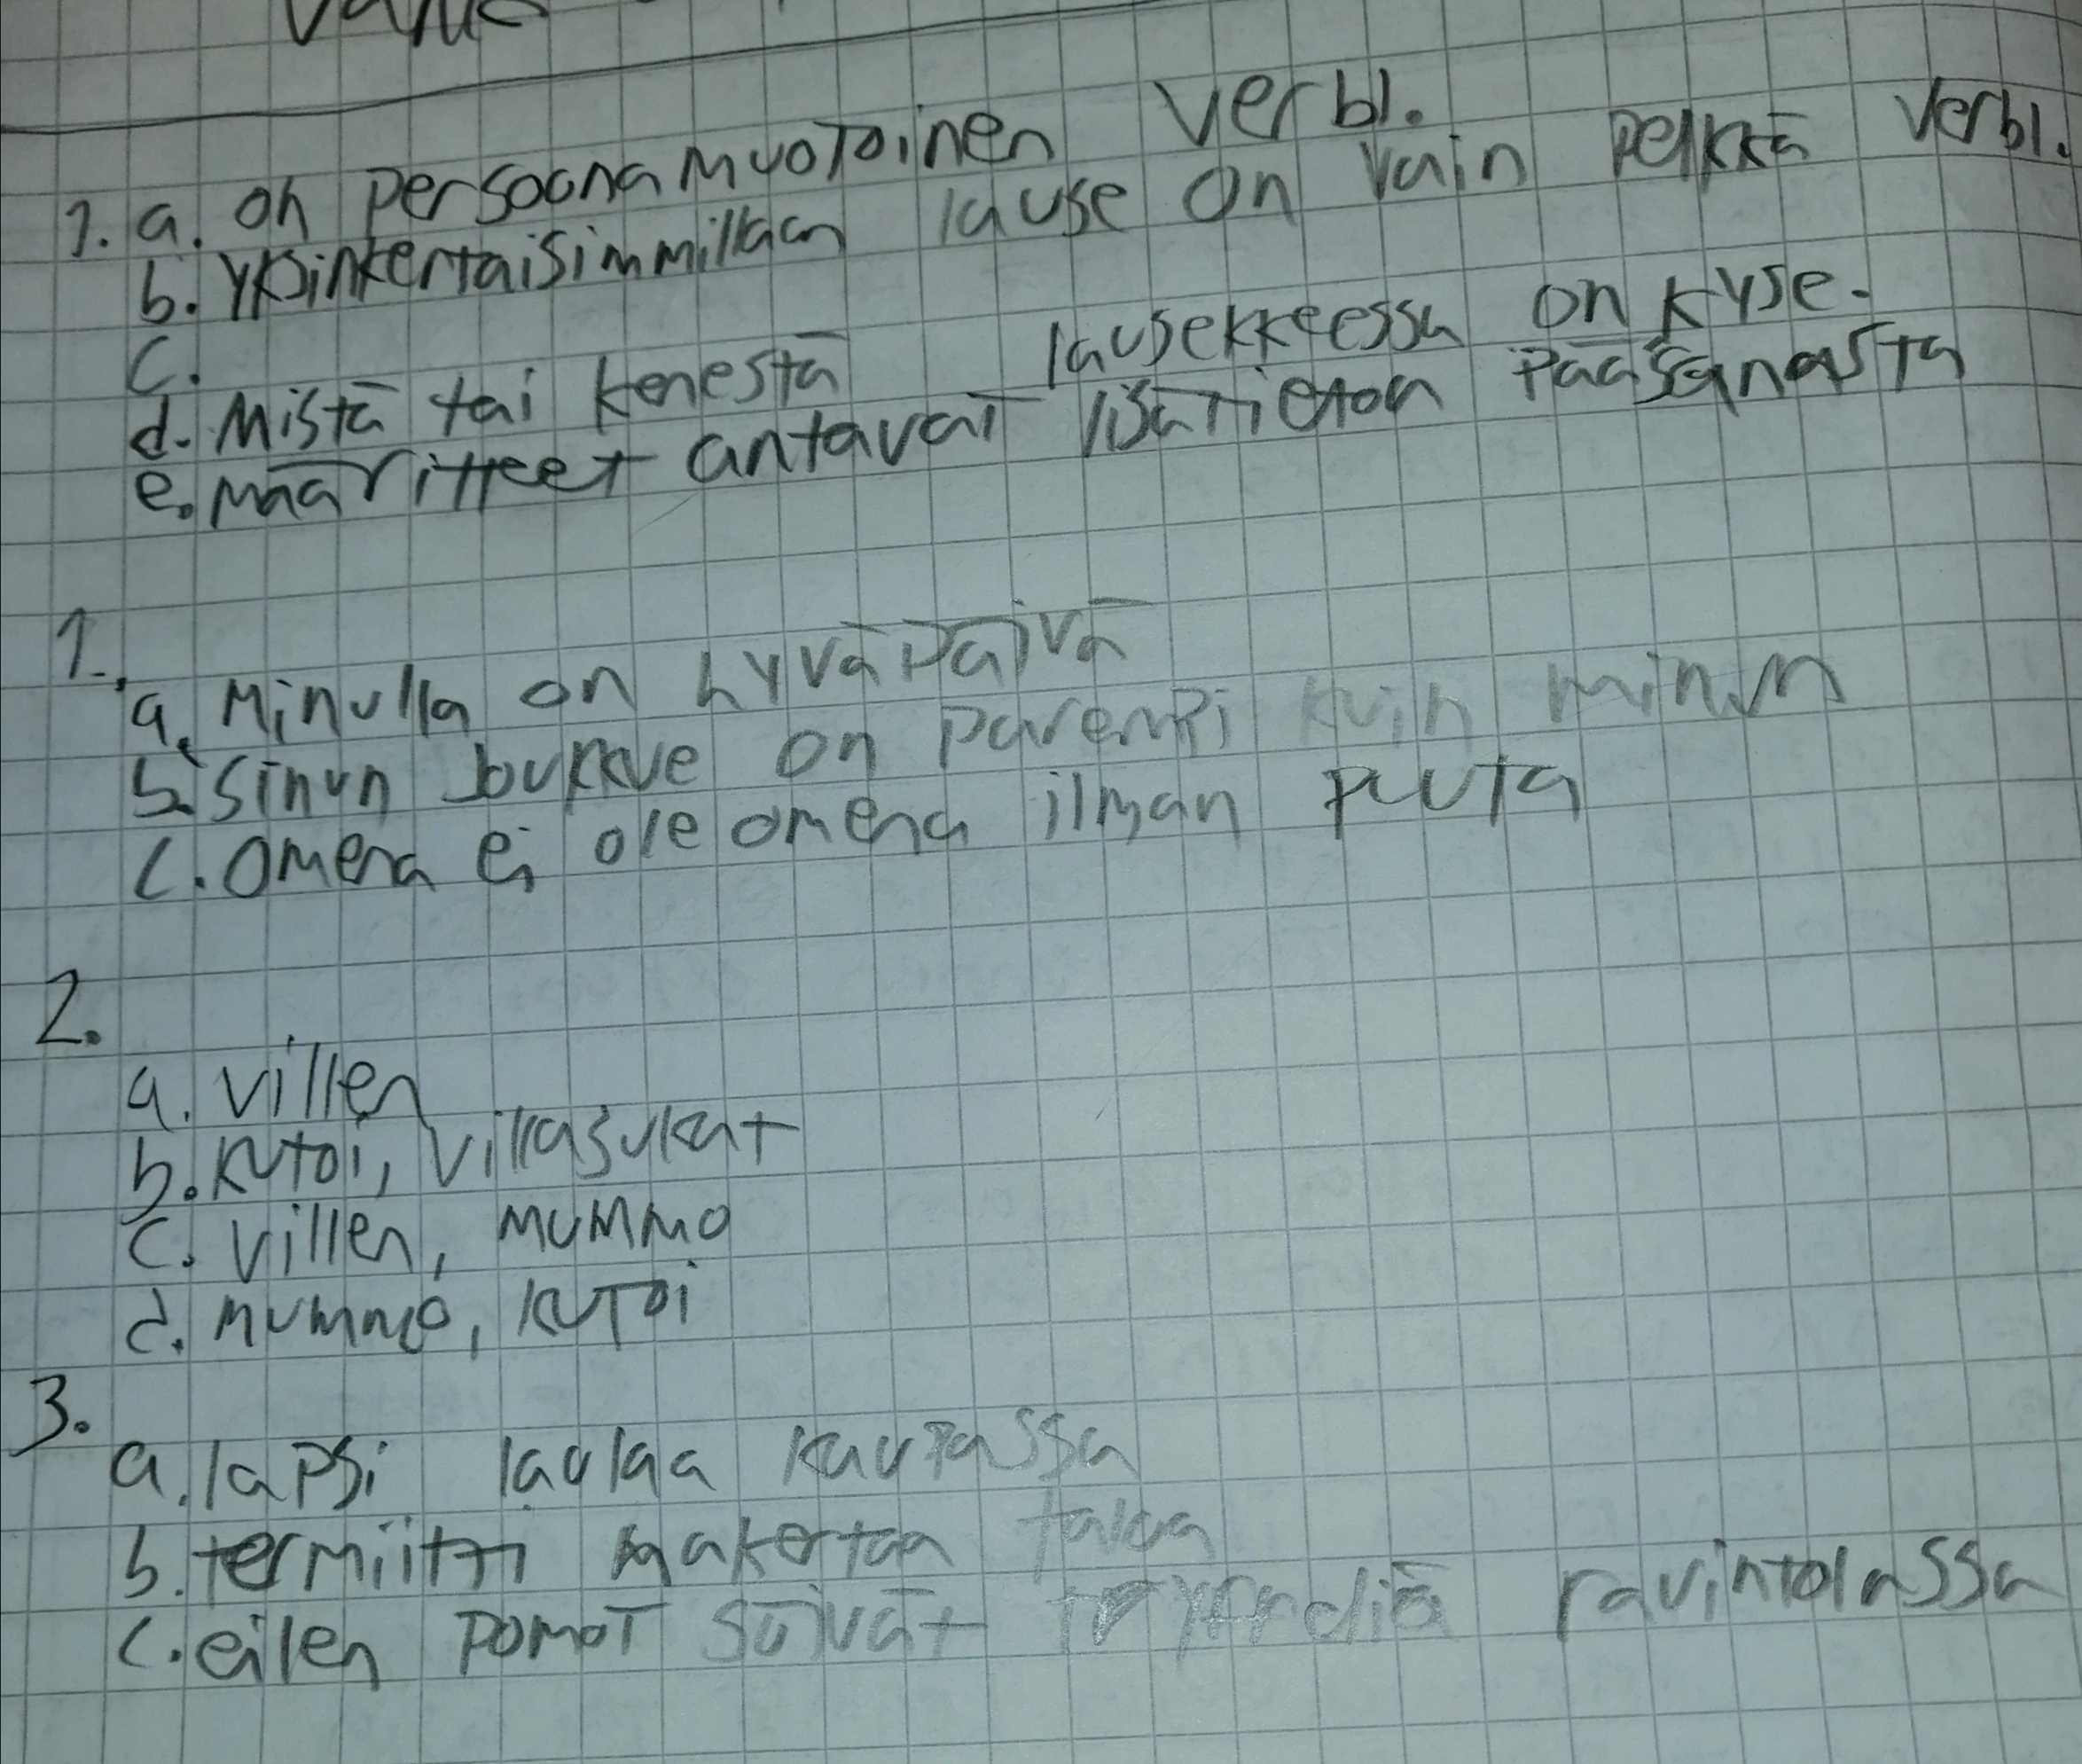 1. a. on persoonamuotoinen verbi.
b. Yksinkertaisimmillaan lause on vain pelkkä verbi.
c.
d. Mistä tai kenestä lausekkeessa on kyse.
e. määritteet antavat lisätietoa pääsanasta
1.
a. Minulla on hyvä päivä
b. Sinun joukkue on parempi kuin minun
c. Omena ei ole omena ilman puuta
2.
a. villen
b. kutoi, villasukat
c. villen, mummo
d. mummo, kutoi
3.
a. lapsi laulaa kaupassa
b. termiitti makertaa taloa
c. eilen pomot söivät ravintolassa